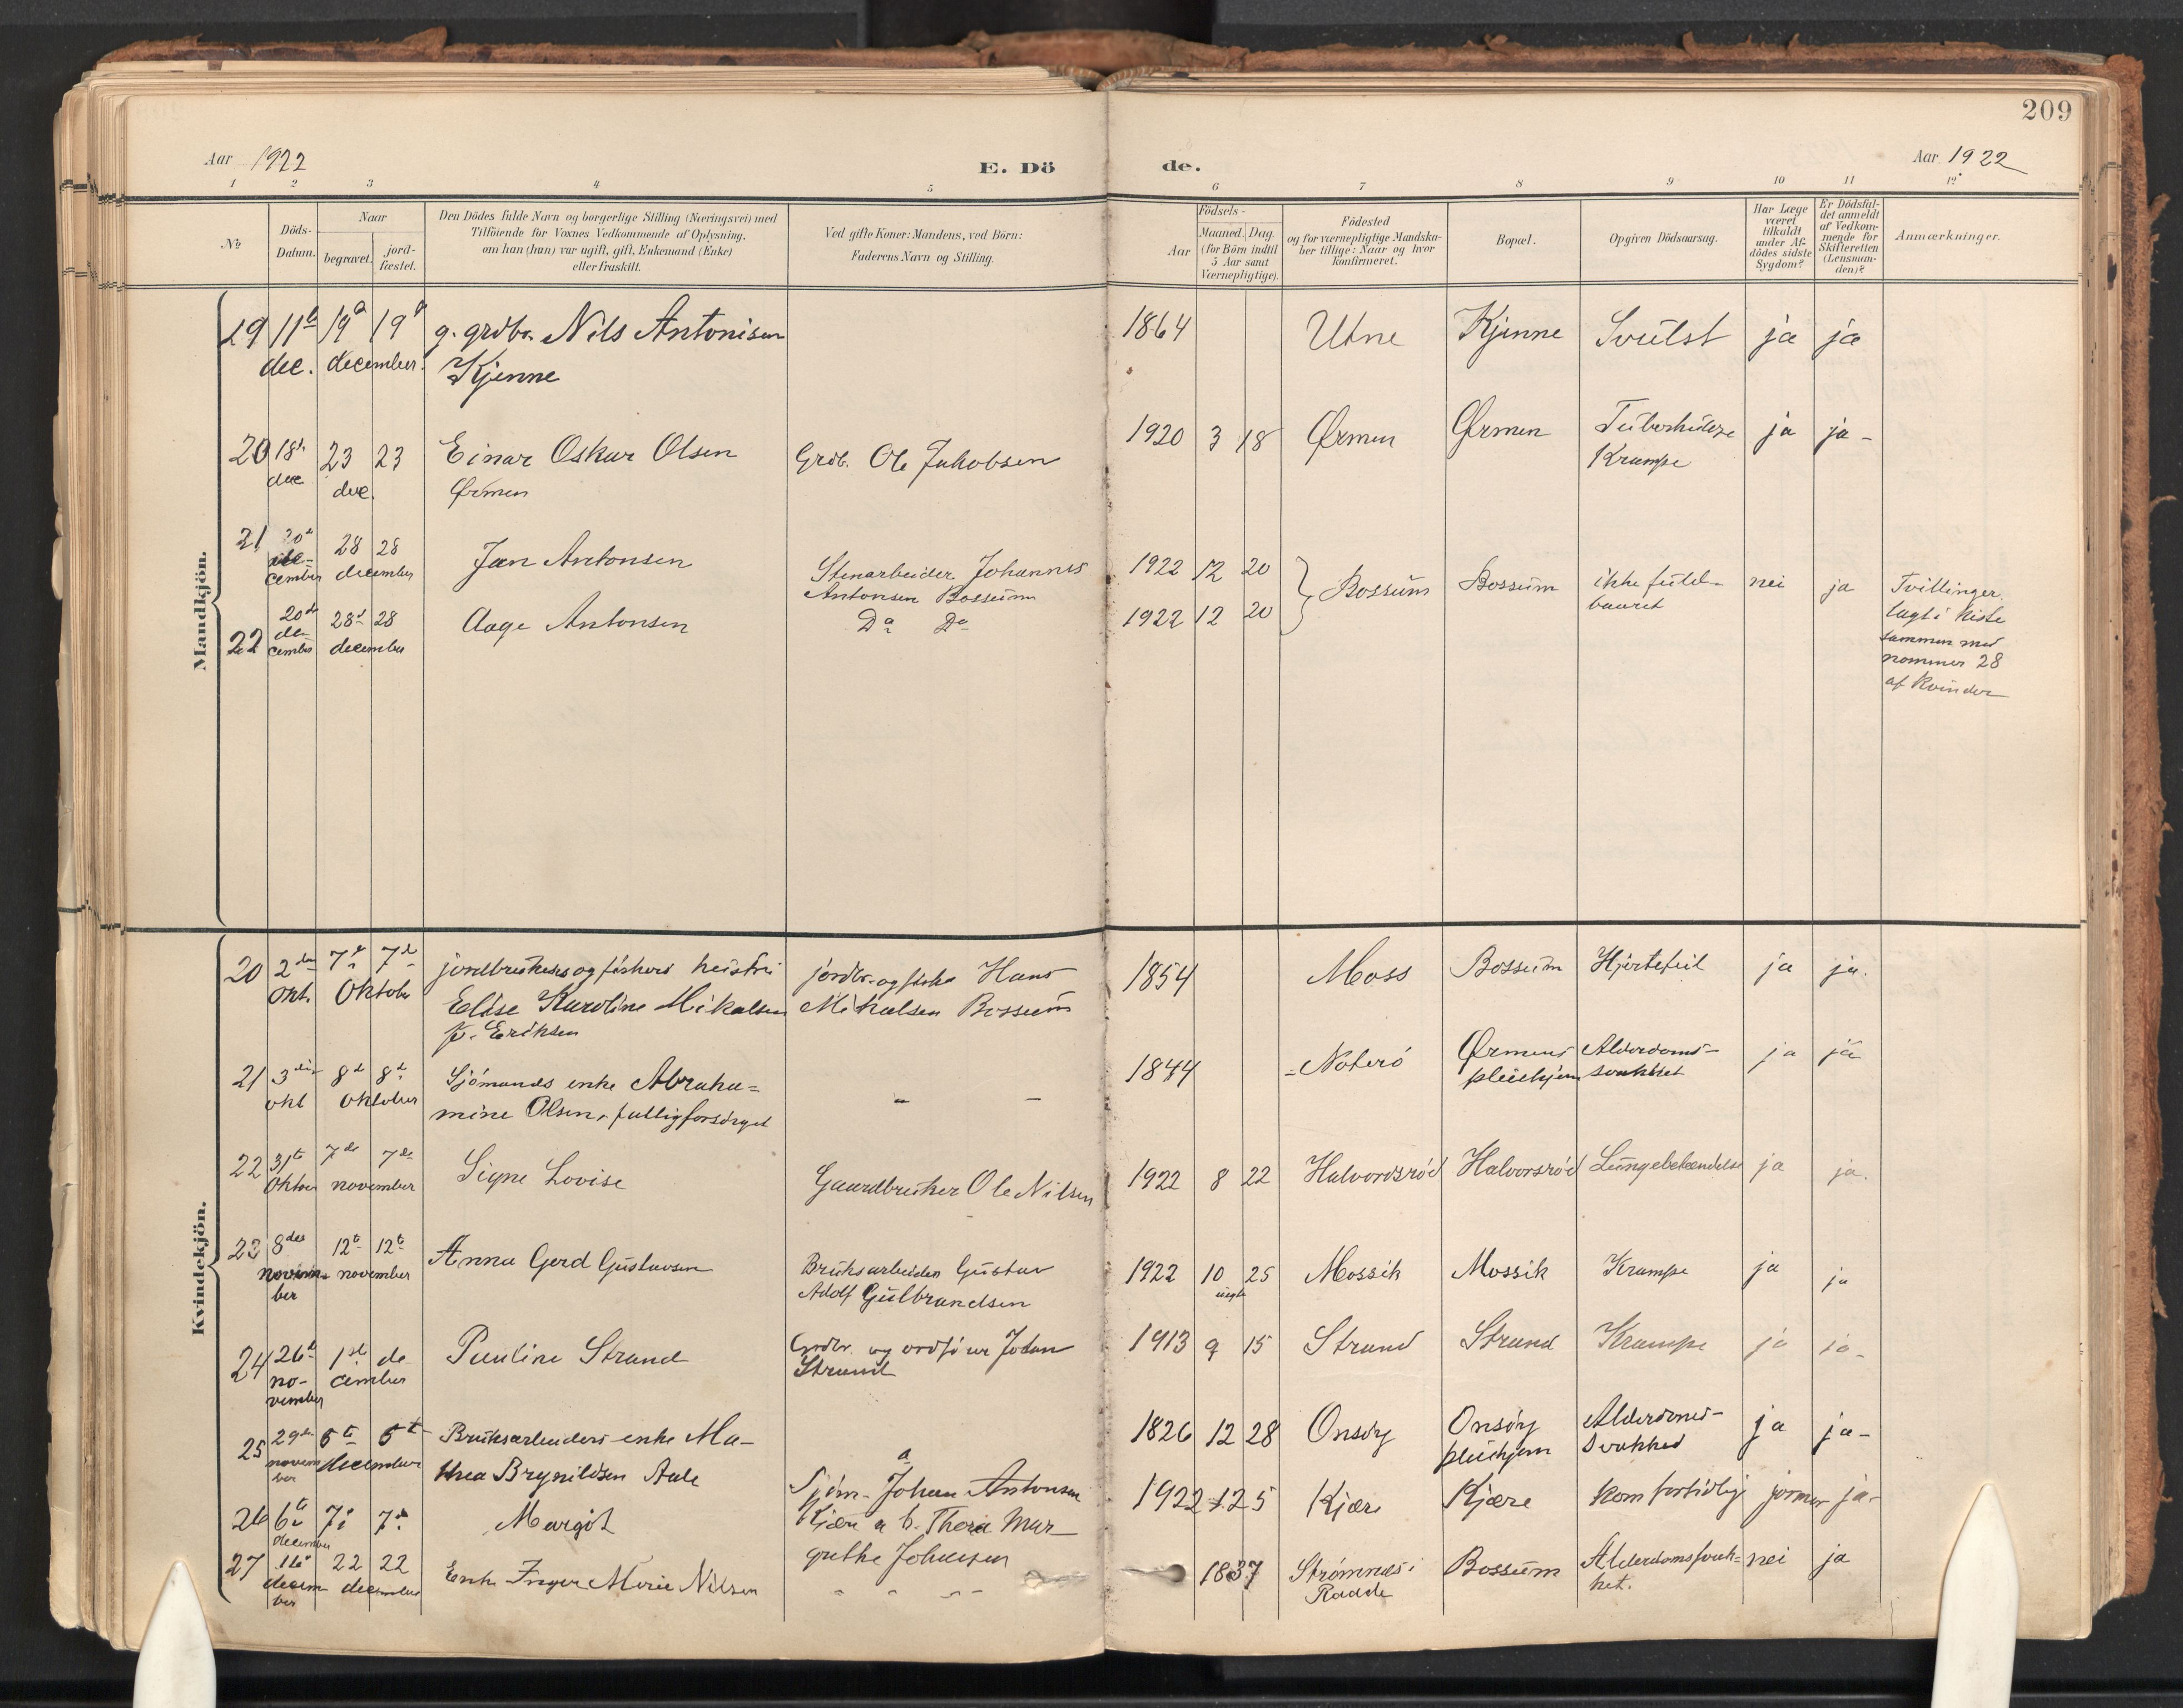 209
Aar 1922
E. Dö
de.
Aar 1922
1 2 3 4 5 6 7 8 9 10 11 12
№
Döds-
Datum.
Naar
begravet.
jord-
fæstet.
Den Dödes fulde Navn og borgerlige Stilling (Næringsvei) med
Tilföiende for Voxnes Vedkommende af Oplysning,
om han (hun) var ugift, gift, Enkemand (Enke)
eller fraskilt.
Ved gifte Koner: Mandens, ved Börn:
Faderens Navn og Stilling.
Födsels-
Aar
Maaned. Dag.
(for Börn indtil
5 Aar samt
Værnepligtige).
Födested
og for værnepligtige Mandska-
ber tillige: Naar og hvor
konfirmeret.
Bopæl.
Opgiven Dödsaarsag.
Har Læge
været
tilkaldt
under Af-
dödes sidste
Sygdom?
Er Dödsfal-
det anmeldt
af Vedkom-
mende for
Skifteretten
(Lensman-
den)?
Anmærkninger.
Mandkjön.
19 11te 19de 19de g. grdbr. Nils Antonisen 1864 Utne Kjenne Svulst ja ja
dec. december. Kjenne
20 18de 23 23 Einar Oskar Olsen Grdb. Ole Jakobsen 1920 3 18 Ørmen Ørmen Tuberkuløse ja ja-
dec dec. Ørmen Krampe
21 20de 28 28 Jan Antonsen Stenarbeider Johannes 1922 12 20 Bossum Bossum ikke fuld- nei ja Tvillinger.
december december Antonsen Bossum baaret lagt i kiste
22 20de 28de 28 Aage Antonsen Do Do 1922 12 20 sammen med
december december nommer 28
af kvinder
Kvindekjön.
20 2den 7de 7de jordbrukers og fiskers hustru jordbr. og fisker Hans 1854 Moss Bossum Hjertefeil ja ja.
okt. Oktober Elise Karoline Mikalsen Mikalsen Bossum
f. Eriksen
21 3die 8de 8de Sjömands enke Abraha= - - 1844 Noterö Ørmens Alderdoms- ja ja
okt oktober mine Olsen, fattigforsörget pleiehjem svakhet
22 31te 7de 7de Signe Lovise Gaardbruker Ole Nilsen 1922 8 22 Halvordsröd Halvorsröd Lungebetændelse ja ja.
Oktber november
23 8de 12te 12te Anna Gerd Gustavsen Bruksarbeider Gustav 1922 10 25 Mossik Mossik Krampe ja ja
november november Adolf Gulbrandsen uegte
24 26de 1ste de Pauline Strand Grdbr. og ordförer Johan 1913 9 15 Strand Strand Krampe ja ja-
november cember Strand
25 29de 5te 5te Bruksarbeiders enke Ma- 1826 12 28 Onsöy Onsöy Alderdoms- ja ja-
november december thea Brynildsen Aale pleiehjem svakhed
26 6te 7de 7de Margot Sjöm. Johan Antonsen 1922 12 5 Kjære Kjære kom fortidlig jormor ja-
december Kjære a b. Thora Mar-
grethe Johansen
27 16de 22 22 Enke Inger Marie Nilsen 1837 Strömnes i Bossum Alderdomssvak= nei ja
december december Raade het.